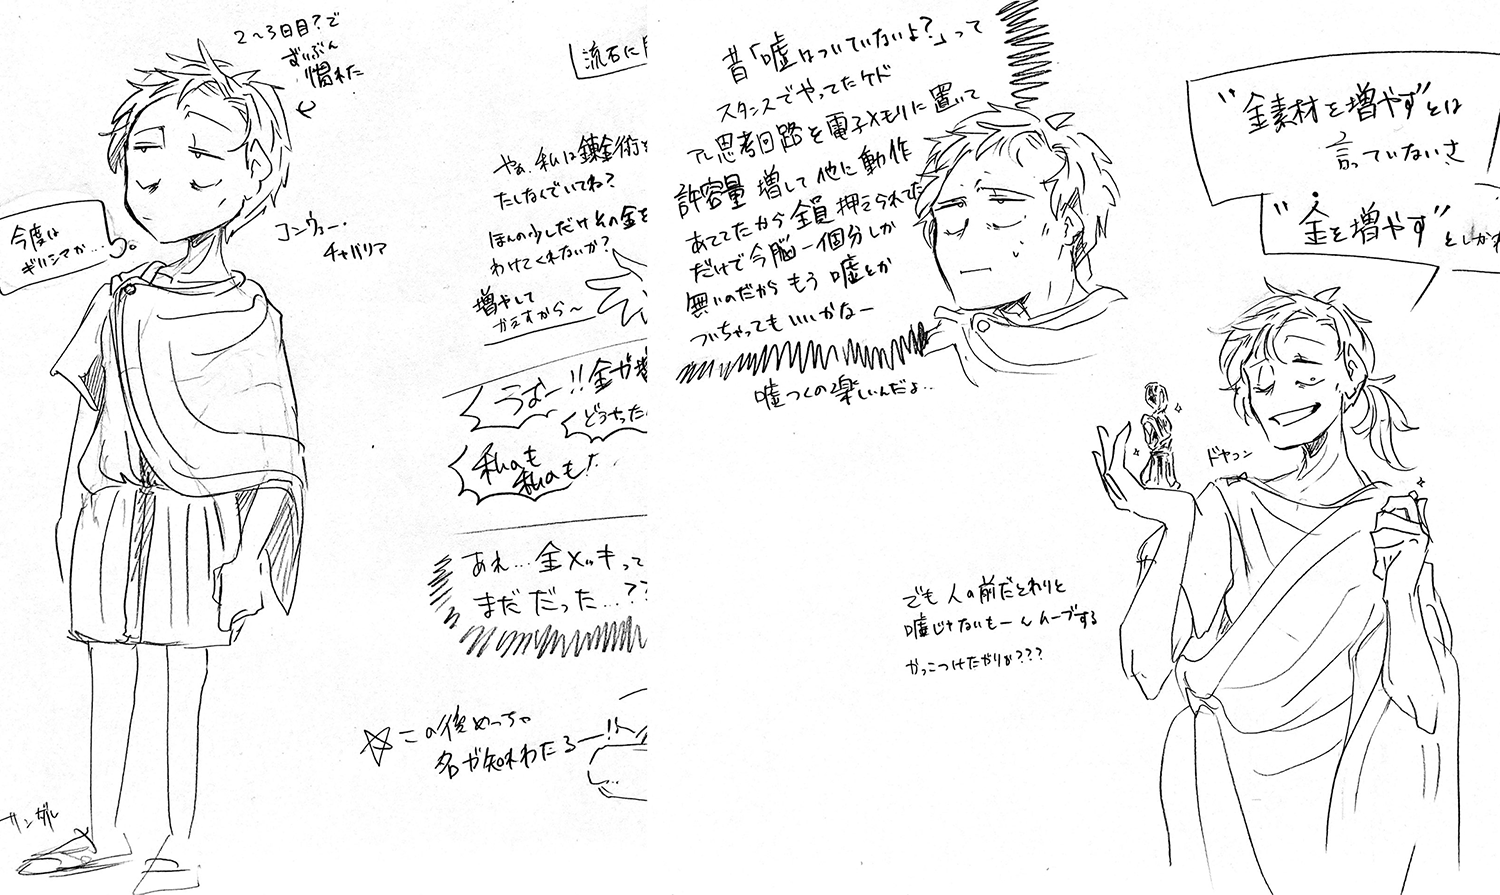 2〜3日目?で
ずいぶん
慣れた
今度は
ギリシアか…
コンヴュー・
チャバリア
サンダル
流石に
やぁ、私は錬金術を
たしなんでいてね?
ほんの少しだけその金を
わけてくれないか?
増やして
かえすから〜
うおー!!金が増
どうやった
私のも
私のも!
あれ…金メッキって
まだだった…??
☆この後めっちゃ
名が知れわたるー!!
昔「嘘はついていないよ?」って
スタンスでやってたケド
アレ思考回路を電子メモリに置いて
許容量増して他に動作
あててたから全員押えられてた
だけで今脳一個分しか
無いのだからもう嘘とか
ついちゃってもいいかなー
嘘つくの楽しいんだよ..
"金素材を増やす"とは
言っていないさ
"金を増やす"としか
ドヤコン
でも人の前だとわりと
嘘じゃないもーんムーブする
かっこつけたがりか???